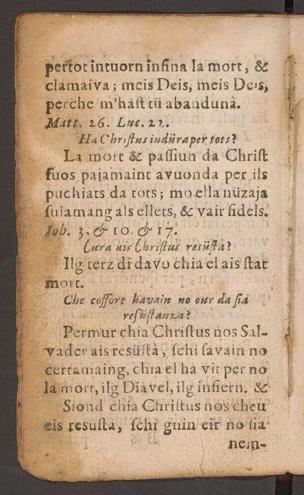 pertot intuorn infina la mort, &
clamaiva; meis Deis, meis Deis,
perche m'hast tü abandunà.
Matt. 26. Luc. 22.
Ha Christus indüra per tots?
La mort & passiun da Christ
fuos pajamaint avuonda per ils
puchiats da tots; mo ella nüzaja
sulamang als ellets, & vair fidels.
Joh. 3. & 10. & 17.
Cura ais Christus resüstà?
Ilg terz di davo chia el ais stat
mort.
Che coffort havain no our da sia
resüstanza?
Permur chia Christus nos Sal-
vader ais resüstà, schi savain no
certamaing, chia el ha vit per no
la mort, ilg Diavel, ilg infiern. &
Siond chia Christus nos cheu
eis resusta, schi guin eir no sia
nem-